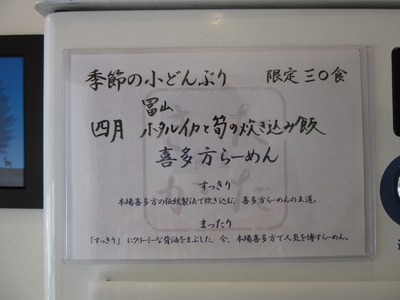 季節の小どんぶり 限定三〇食
富山
四月 ホタルイカと筍の炊き込み飯
喜多方らーめん
すっきり
本場喜多方の伝統製法で炊き込む、喜多方らーめんの王道。
まったり
「すっきり」にクリーミーな背油をまぶした、今、本場喜多方で人気を博すらーめん。